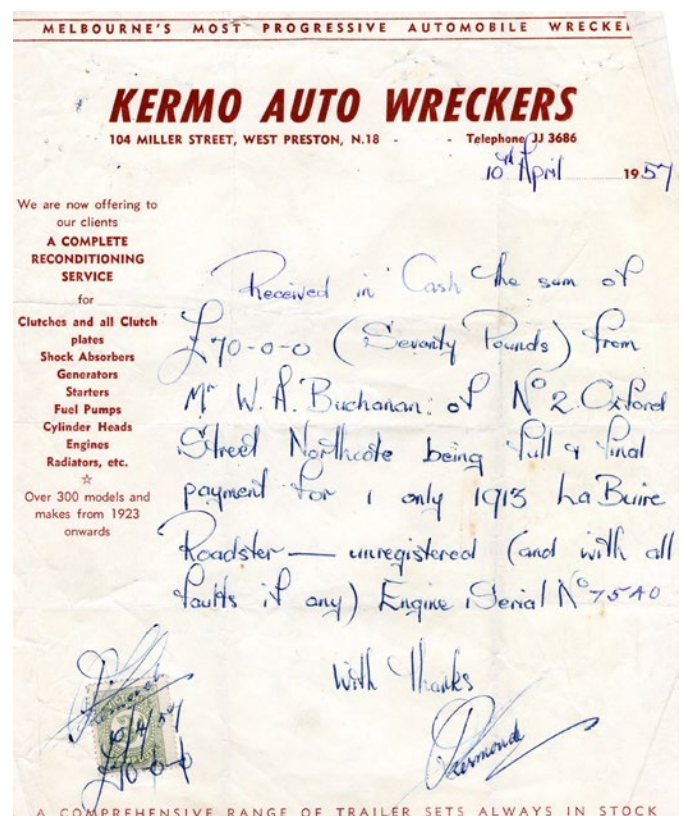 MELBOURNE'S MOST PROGRESSIVE AUTOMOBILE WRECKE
KERMO AUTO WRECKERS
104 MILLER STREET, WEST PRESTON, N.18 - - Telephone JJ 3686
10th April 1957
We are now offering to
our clients
A COMPLETE
RECONDITIONING
SERVICE
for
Clutches and all Clutch
plates
Shock Absorbers
Generators
Starters
Fuel Pumps
Cylinder Heads
Engines
Radiators, etc.
☆
Over 300 models and
makes from 1923
onwards
Received in Cash the sum of
£70-0-0 (Seventy Pounds) from
Mr W. A. Buchanan. of No 2. Oxford
Street Northcote being full & final
payment for 1 only 1913 La Buire
Roadster — unregistered (and with all
faults if any) Engine Serial No 7540
With Thanks
10/4/57
£70-0-0
A COMPREHENSIVE RANGE OF TRAILER SETS ALWAYS IN STOCK